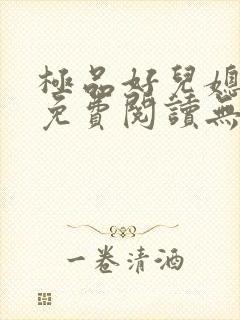 極品好兒媳
免費閱讀無
一卷清酒